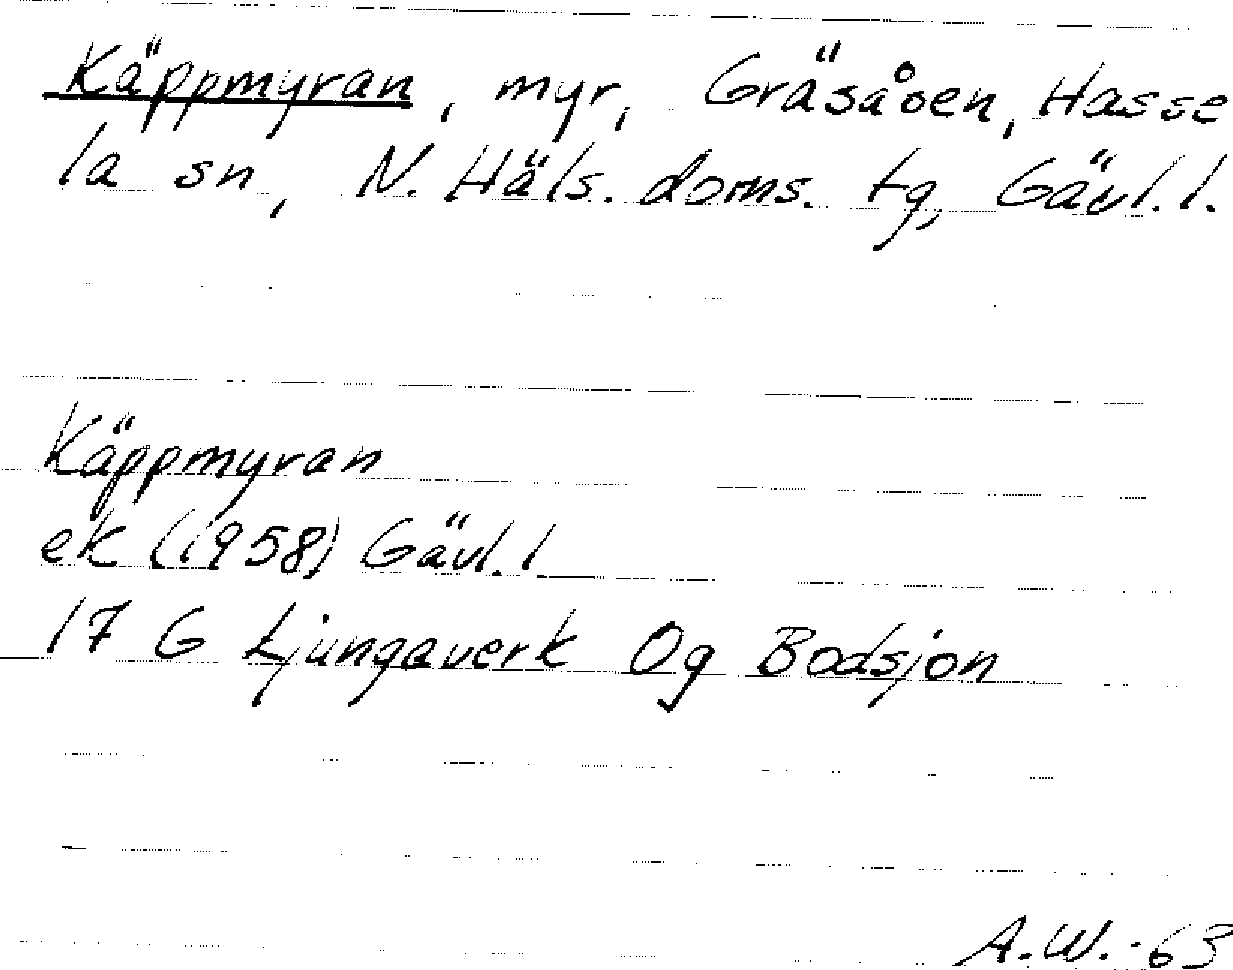 Käppmyran, myr, Gräsåsen, Hasse
la sn, N. Häls. doms. tg, Gävl. l.
Käppmyran
ek (1958) Gävl. l
17 G Ljungaverk Og Bodsjön
A.W.-63